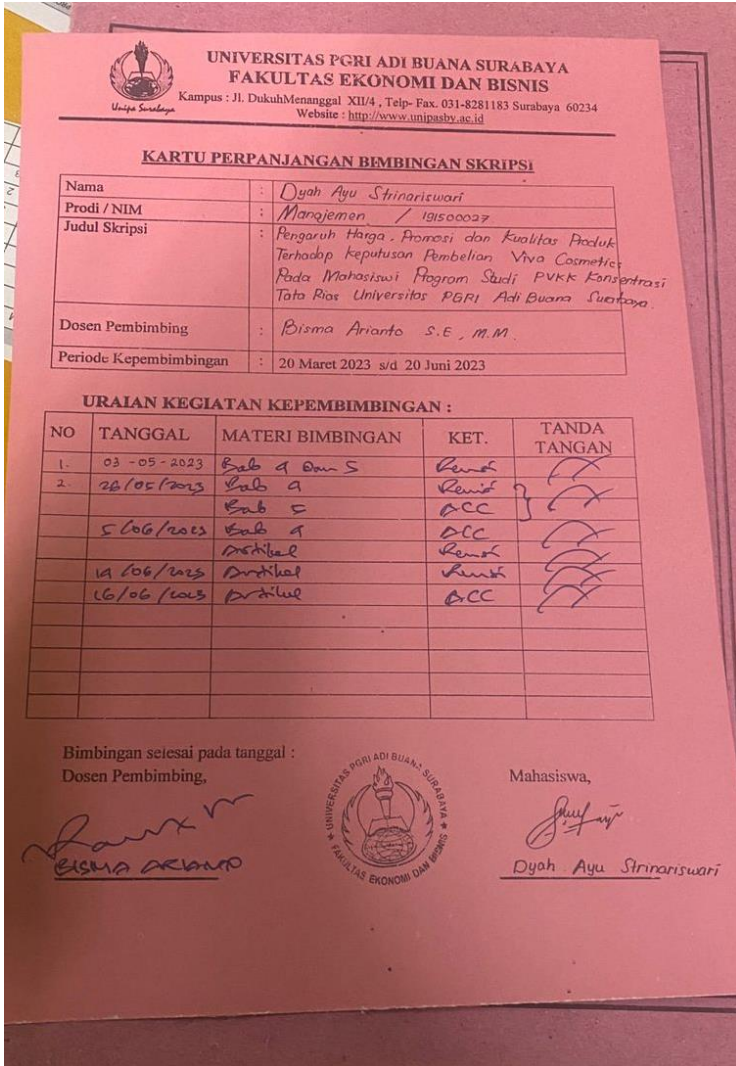 UNIVERSITAS PGRI ADI BUANA SURABAYA
FAKULTAS EKONOMI DAN BISNIS
Kampus : Jl. DukuhMenanggal XII/4 , Telp- Fax. 031-8281183 Surabaya 60234
Website : http://www.unipasby.ac.id
Unipa Surabaya
KARTU PERPANJANGAN BIMBINGAN SKRIPSI
Nama : Dyah Ayu Strinariswari
Prodi / NIM : Manajemen / 191500027
Judul Skripsi : Pengaruh Harga, Promosi dan Kualitas Produk
Terhadap Keputusan Pembelian Viva Cosmetics
Pada Mahasiswi Program Studi PVKK Konsentrasi
Tata Rias Universitas PGRI Adi Buana Surabaya.
Dosen Pembimbing : Bisma Arianto S.E, M.M.
Periode Kepembimbingan : 20 Maret 2023 s/d 20 Juni 2023
URAIAN KEGIATAN KEPEMBIMBINGAN :
NO TANGGAL MATERI BIMBINGAN KET. TANDA TANGAN
1. 03-05-2023 Bab 4 Dan 5 Revisi
2. 26/05/2023 Bab 4 Revisi
Bab 5 ACC
5/06/2023 Bab 4 ACC
Artikel Revisi
14/06/2023 Artikel Revisi
16/06/2023 Artikel ACC
Bimbingan selesai pada tanggal :
Dosen Pembimbing, Mahasiswa,
UNIVERSITAS PGRI ADI BUANA SURABAYA
FAKULTAS EKONOMI DAN BISNIS
BISMA ARIANTO
Dyah Ayu Strinariswari